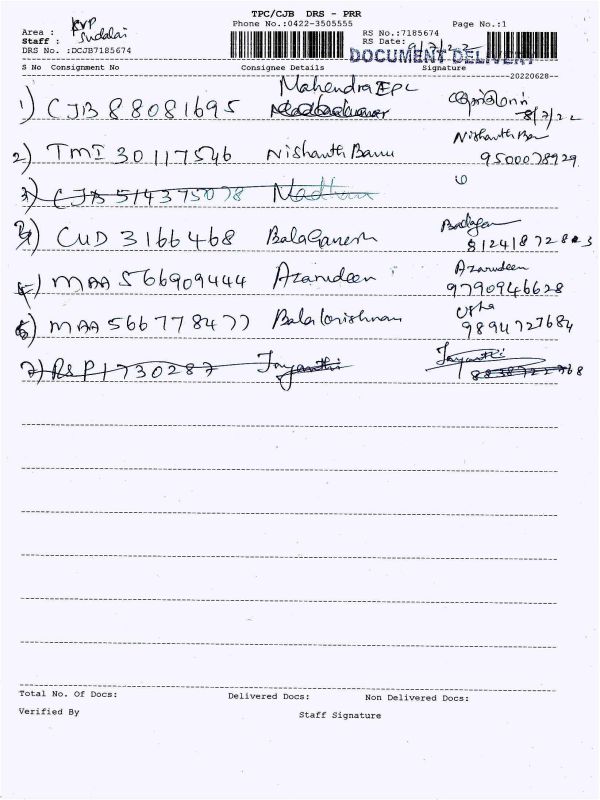 TPC/CJB DRS - PRR
Area : KVP Phone No.:0422-3505555 Page No.:1
Staff : Sudalai RS No.:7185674
DRS No. :DCJB7185674 RS Date:
DOCUMENT DELIVERY
S No Consignment No Consignee Details Signature
20220628
1) CJB 88081695 Mahendra EPC 8/7/22
2) TMI 30117546 Nishanth Banu Nishanth Ban
9500078929
3) CJB 514375078 Madhan
4) CUD 3166468 BalaGanesh
5) MAA 566909444 Azarudeen Azarudeen
9790946628
6) MAA 566778477 Balakrishnan Usha
9894727684
7) RSP1730287 Jayanthi Jayanthi
Total No. Of Docs: Delivered Docs: Non Delivered Docs:
Verified By Staff Signature